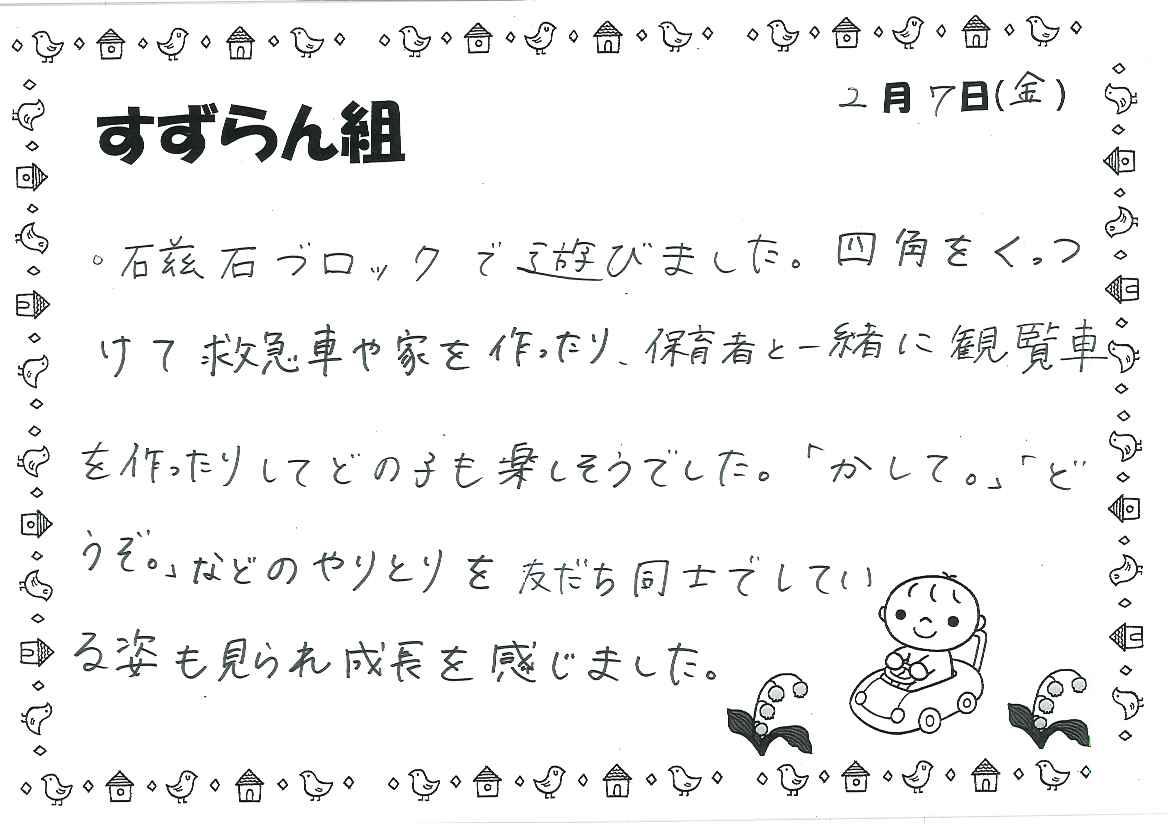 2月7日(金)
すずらん組
。磁石ブロックで遊びました。四角をくっつ
けて救急車や家を作ったり、保育者と一緒に観覧車
を作ったりしてどの子も楽しそうでした。「かして。」「ど
うぞ。」などのやりとりを友だち同士でしてい
る姿も見られ成長を感じました。